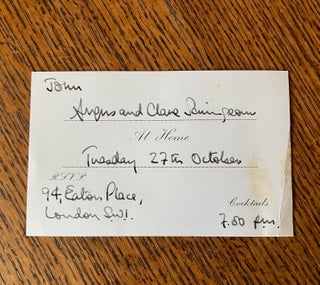 John
Angus and Clare
At Home
Tuesday 27th October
R.S.V.P.
94, Eaton Place,
London SW1.
Cocktails
p.m.